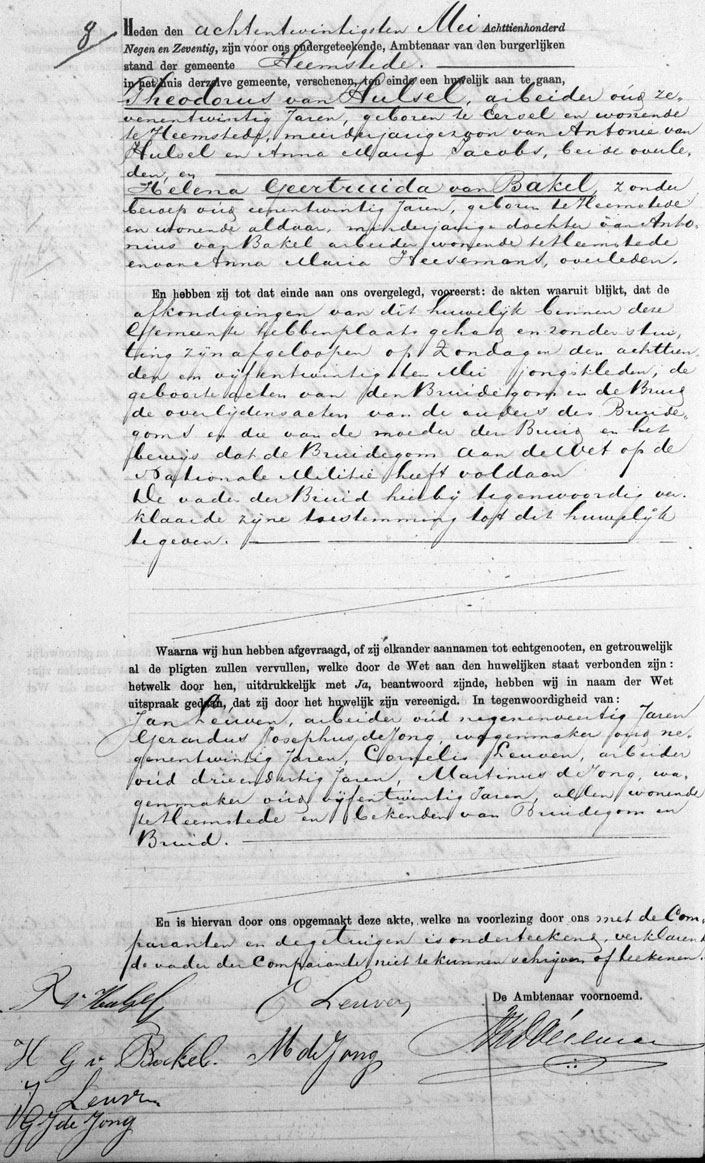 8
Heden den achtentwintigsten Mei Achttienhonderd
Negen en Zeventig, zijn voor ons ondergeteekende, Ambtenaar van den burgerlijken
stand der gemeente Heemstede.
in het huis derzelve gemeente, verschenen, ten einde een huwelijk aan te gaan,
Theodorus van Hulsel, arbeider oud ze-
venentwintig Jaren, geboren te Eersel en wonende
te Heemstede, meerderjarige zoon van Antonie van
Hulsel en Anna Maria Jacobs, beide overle-
den, en
Helena Geertruida van Bakel, zonder
beroep oud eenentwintig Jaren, geboren te Heemstede
en wonende aldaar, minderjarige dochter van Anto-
nius van Bakel arbeider, wonende te Heemstede
en van Anna Maria Heesemans, overleden.
En hebben zij tot dat einde aan ons overgelegd, vooreerst: de akten waaruit blijkt, dat de
afkondigingen van dit huwelijk binnen deze
Gemeente hebben plaats gehad en zonder stui-
ting zijn afgeloopen op Zondagen den achttien
den en vijfentwintigsten Mei jongstleden, de
geboorte acten van den Bruidegom en de Bruid
de overlijdensacten van de ouders des Bruide-
goms en die van de moeder der Bruid en het
bewijs dat de Bruidegom aan de Wet op de
Nationale Militie heeft voldaan
De vader der Bruid hierbij tegenwoordig ver-
klaarde zijne toestemming tot dit huwelijk
te geven.
Waarna wij hun hebben afgevraagd, of zij elkander aannamen tot echtgenooten, en getrouwelijk
al de pligten zullen vervullen, welke door de Wet aan den huwelijken staat verbonden zijn:
hetwelk door hen, uitdrukkelijk met Ja, beantwoord zijnde, hebben wij in naam der Wet
uitspraak gedaan, dat zij door het huwelijk zijn vereenigd. In tegenwoordigheid van:
Jan Leuven, arbeider oud negenenveertig Jaren
Gerardus Josephus de Jong, wagenmaker oud ne-
genentwintig Jaren, Cornelis Leuven, arbeider
oud drieendertig Jaren, Martinus de Jong, wa-
genmaker oud vijfentwintig Jaren, allen wonende
te Heemstede en bekenden van Bruidegom en
Bruid.
En is hiervan door ons opgemaakt deze akte, welke na voorlezing door ons met de Com-
paranten en de getuigen is onderteekend, verklarend
de vader der Comparante niet te kunnen schrijven of teekenen.
De Ambtenaar voornoemd.
C Leuven
H G v Bakel. M de Jong
J Leuven
GJ de Jong